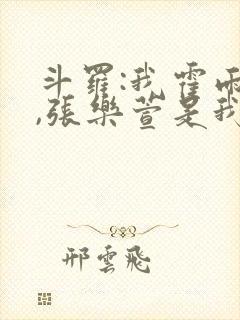 斗羅:我霍雨
,張樂萱是我
邢雲飛